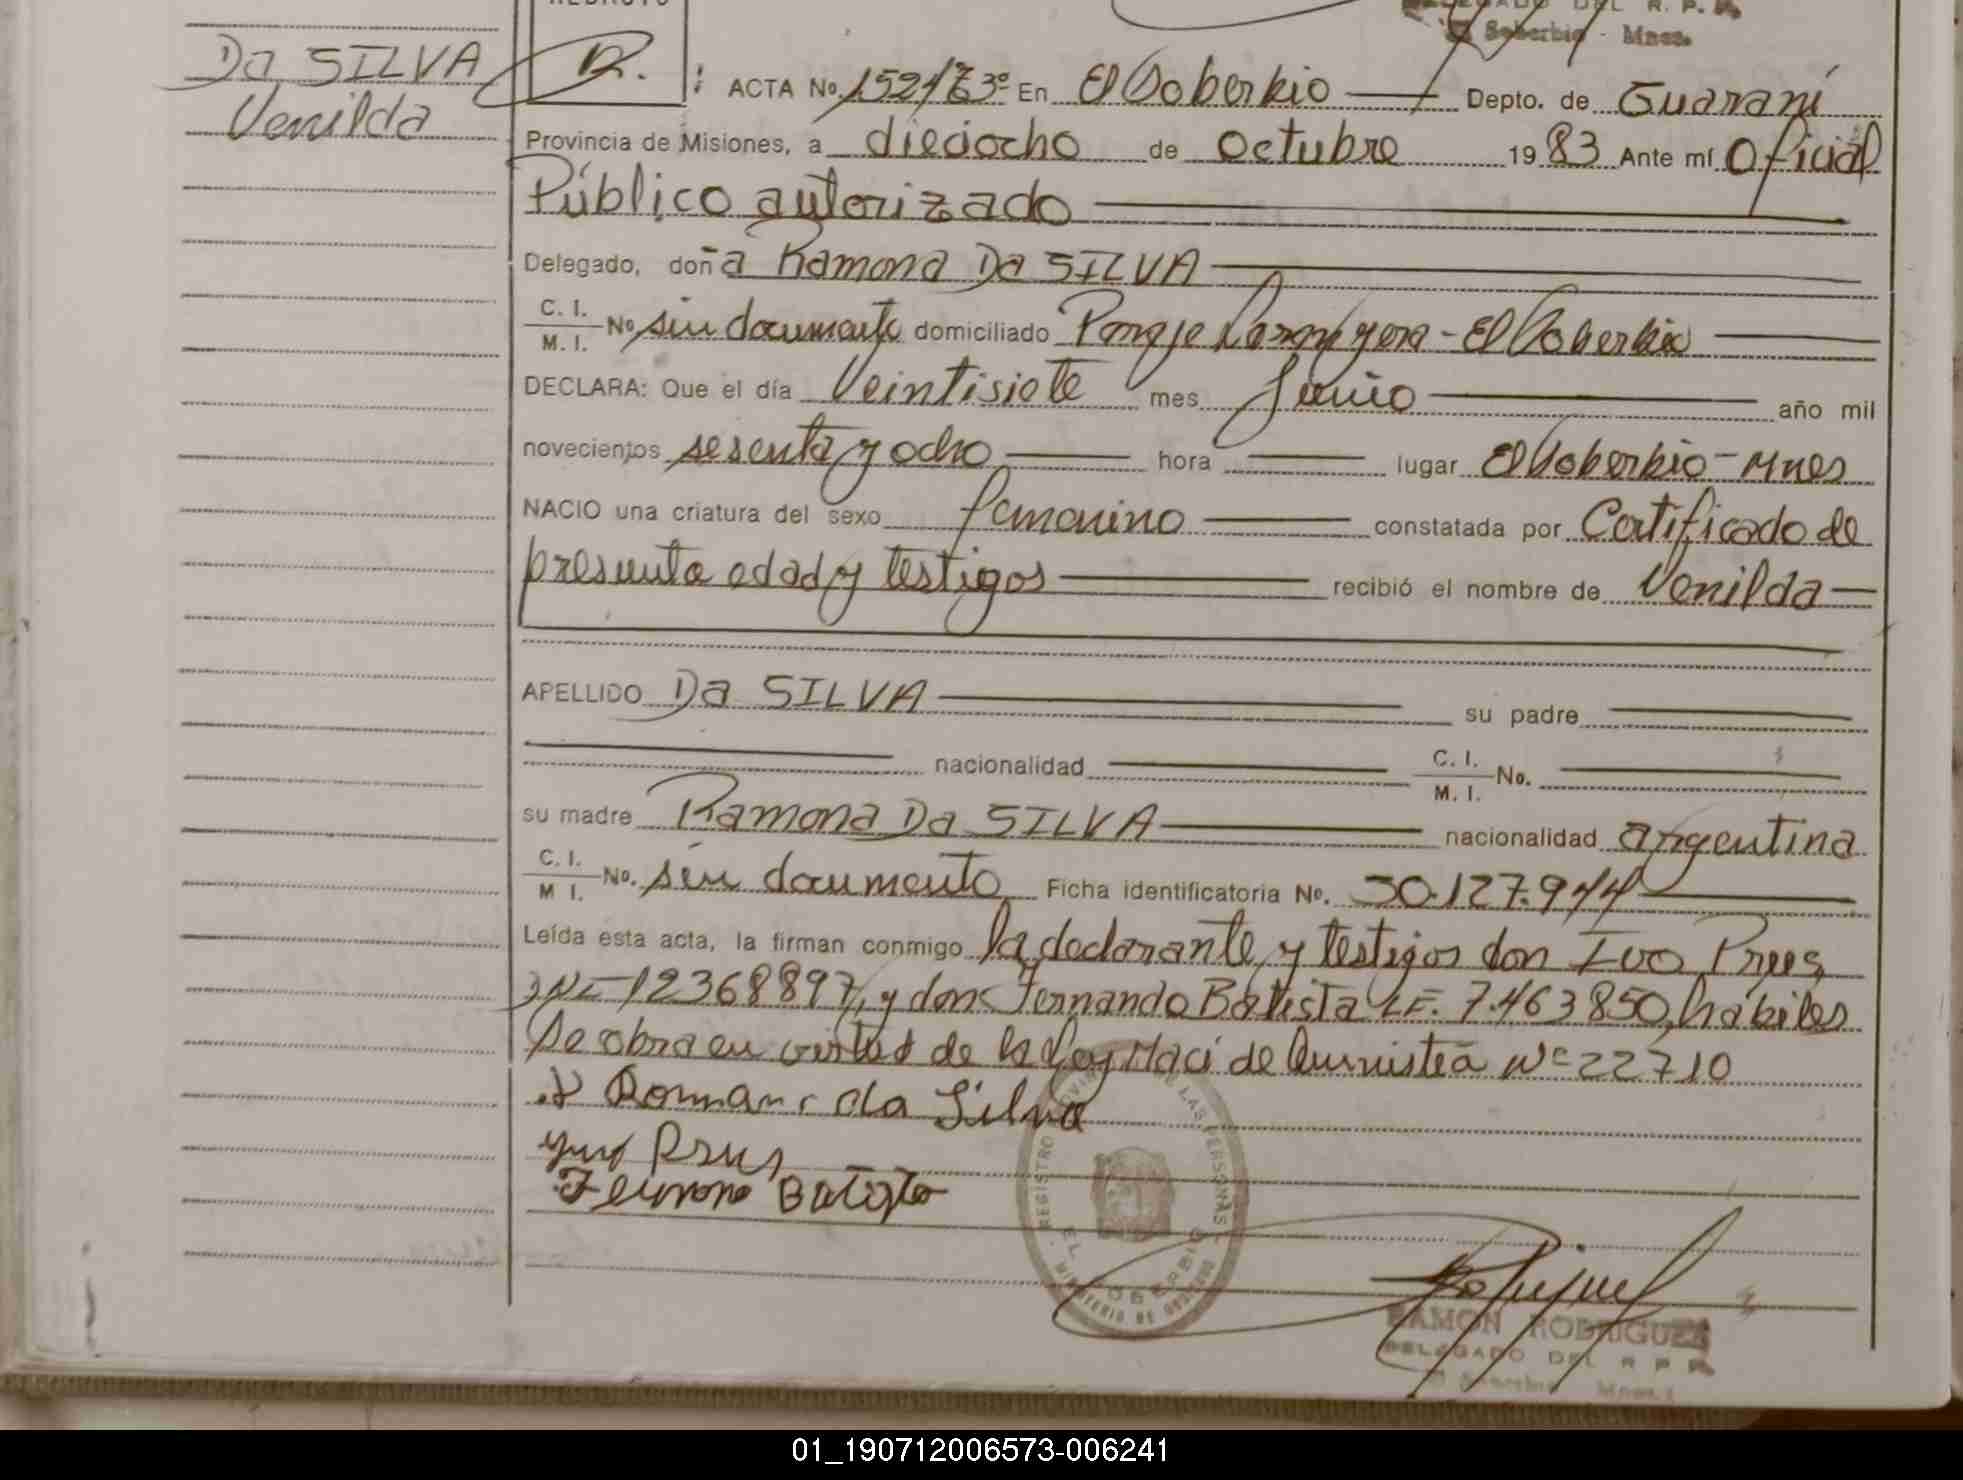 DELEGADO DEL R. P. P.
El Soberbio - Mnes.
Da SILVA
Venilda
R.
ACTA No. 1521/T3º En El Soberbio Depto. de Guaraní
Provincia de Misiones, a dieciocho de Octubre 19 83 Ante mí Oficial
Público autorizado
Delegado, doña Ramona Da SILVA
C. I.
M. I.
No sin documento domiciliado Paraje - El Soberbio
DECLARA: Que el día Veintisiete mes Junio año mil
novecientos sesenta y ocho hora lugar El Soberbio - Mnes
NACIO una criatura del sexo femenino constatada por Certificado de
presunta edad y testigos recibió el nombre de Venilda
APELLIDO Da SILVA su padre
nacionalidad C. I.
M. I. No.
su madre Ramona Da SILVA nacionalidad argentina
C. I.
M I. No. sin documento Ficha identificatoria No. 30.127.944
Leída esta acta, la firman conmigo la declarante y testigos don Ivo Prus
DNI-12368897, y don Fernando Batista LE. 7.463850, hábiles
Se obra en virtud de la Ley Naci de Amnistía Nº 22710
Romana da Silva
Yvo Prus
Batista
REGISTRO PROVINCIAL DE LAS PERSONAS
EL SOBERBIO
MINISTERIO DE GOBIERNO
RAMON RODRIGUEZ
DELEGADO DEL R P P
El Soberbio Mnes.
01_190712006573-006241